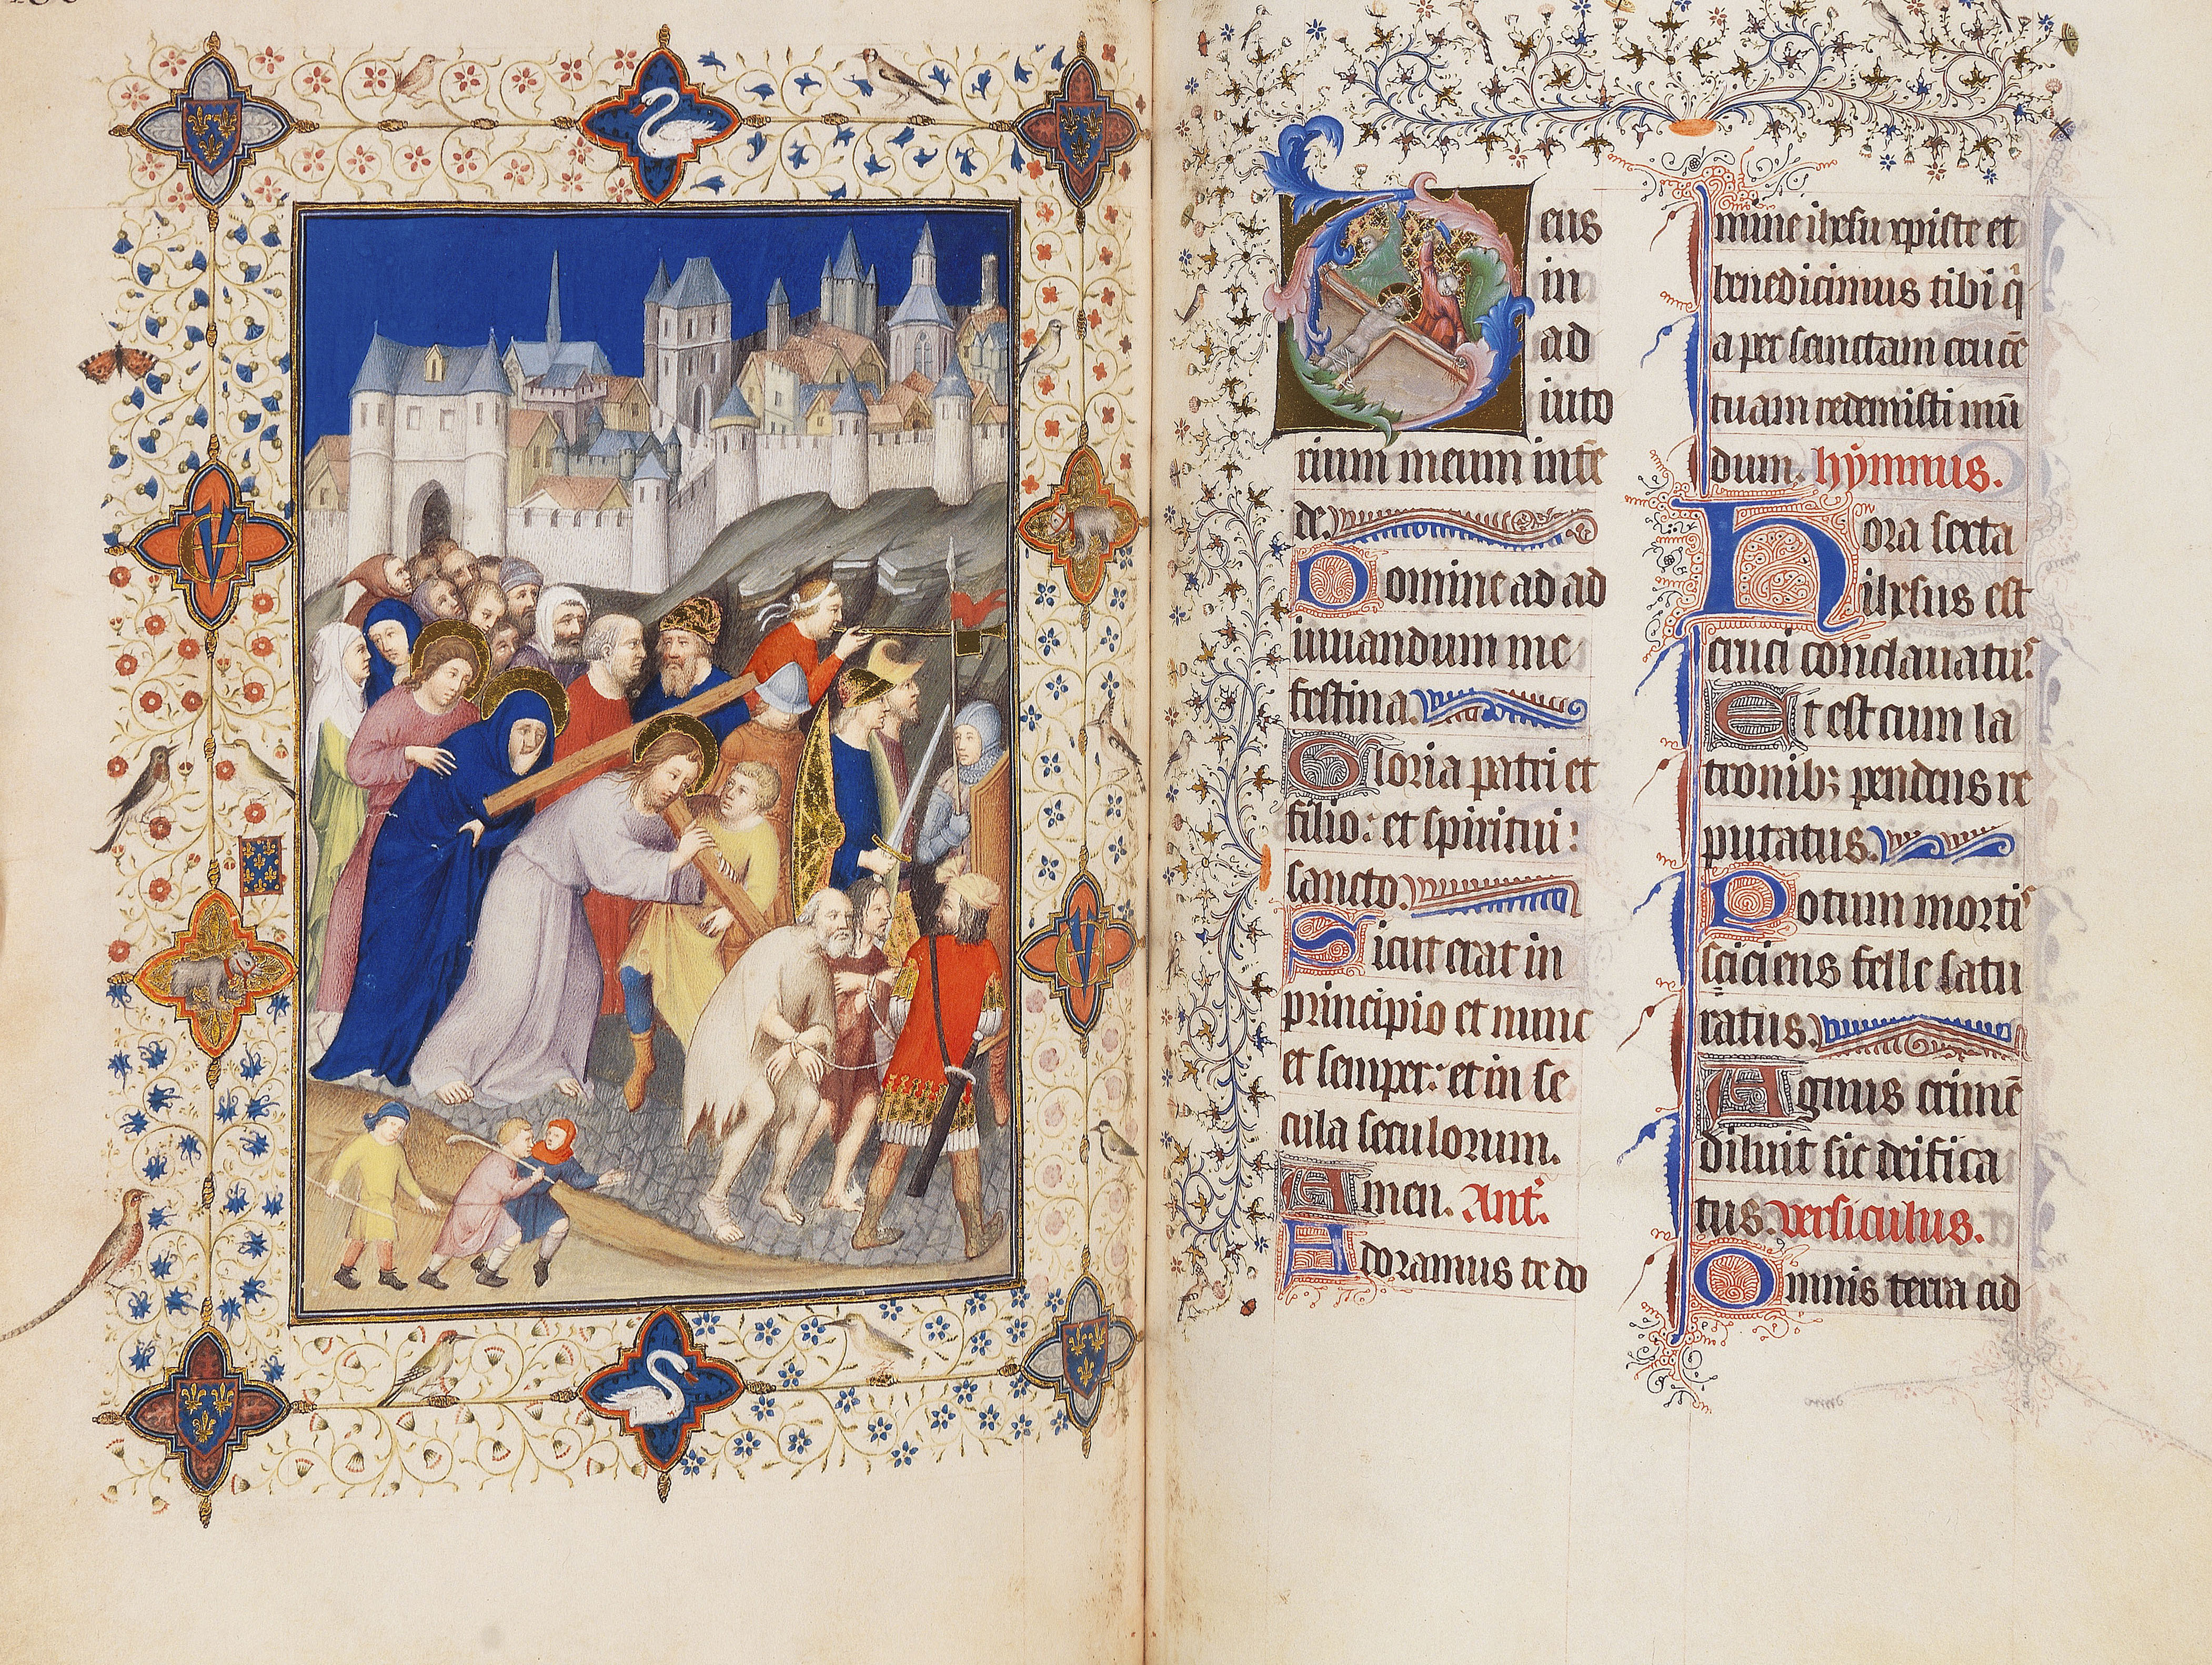 Deus
in
ad
iuto
rium meum intē
de.
Domine ad ad
iuuandum me
festina.
Gloria patri et
filio: et spiritui:
sancto.
Sicut erat in
principio et nunc
et semper: et in se
cula seculorum.
Amen. Ant'.
Adoramus te do
mine ihesu xpiste et
benedicimus tibi q
a per sanctam crucē
tuam redemisti mū
dum. hymnus.
Hora sexta
ihesus est
cruci conclauatus.
Et est cum la
tronibꝫ pendens re
putatus.
Potum mortis
sciciens felle satu
ratus.
Agnus crimē
diluit sic deifica
tus. versiculus.
Omnis terra ad